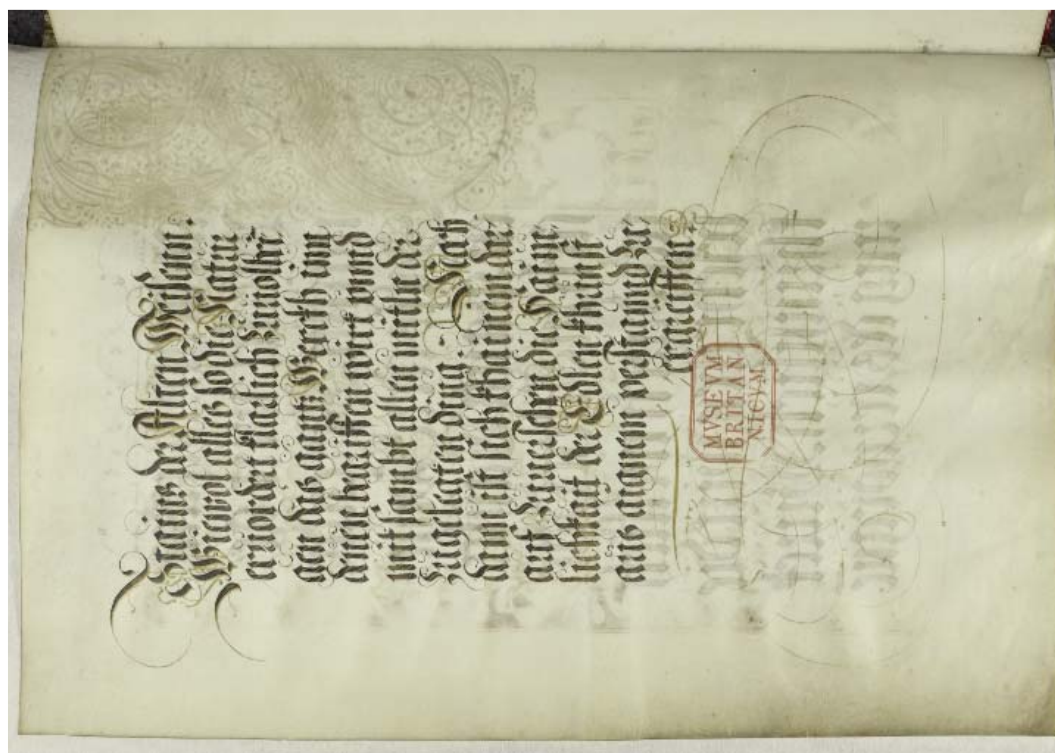 der Alten Weisen.
Wiewol alles so die Natur
ervordert klarlich zuuolbri
gen das gantz Werckh im
begriffen wirt vnnd
mit sambt allen mitln der
zugelegten ding. Nach
ist sich khainem dar
auf zuuersehen die Haim
lichkait der Edlen khunst
aus aignem verstannd zu
ergreiffen.
MVSEVM
BRITAN
NICVM